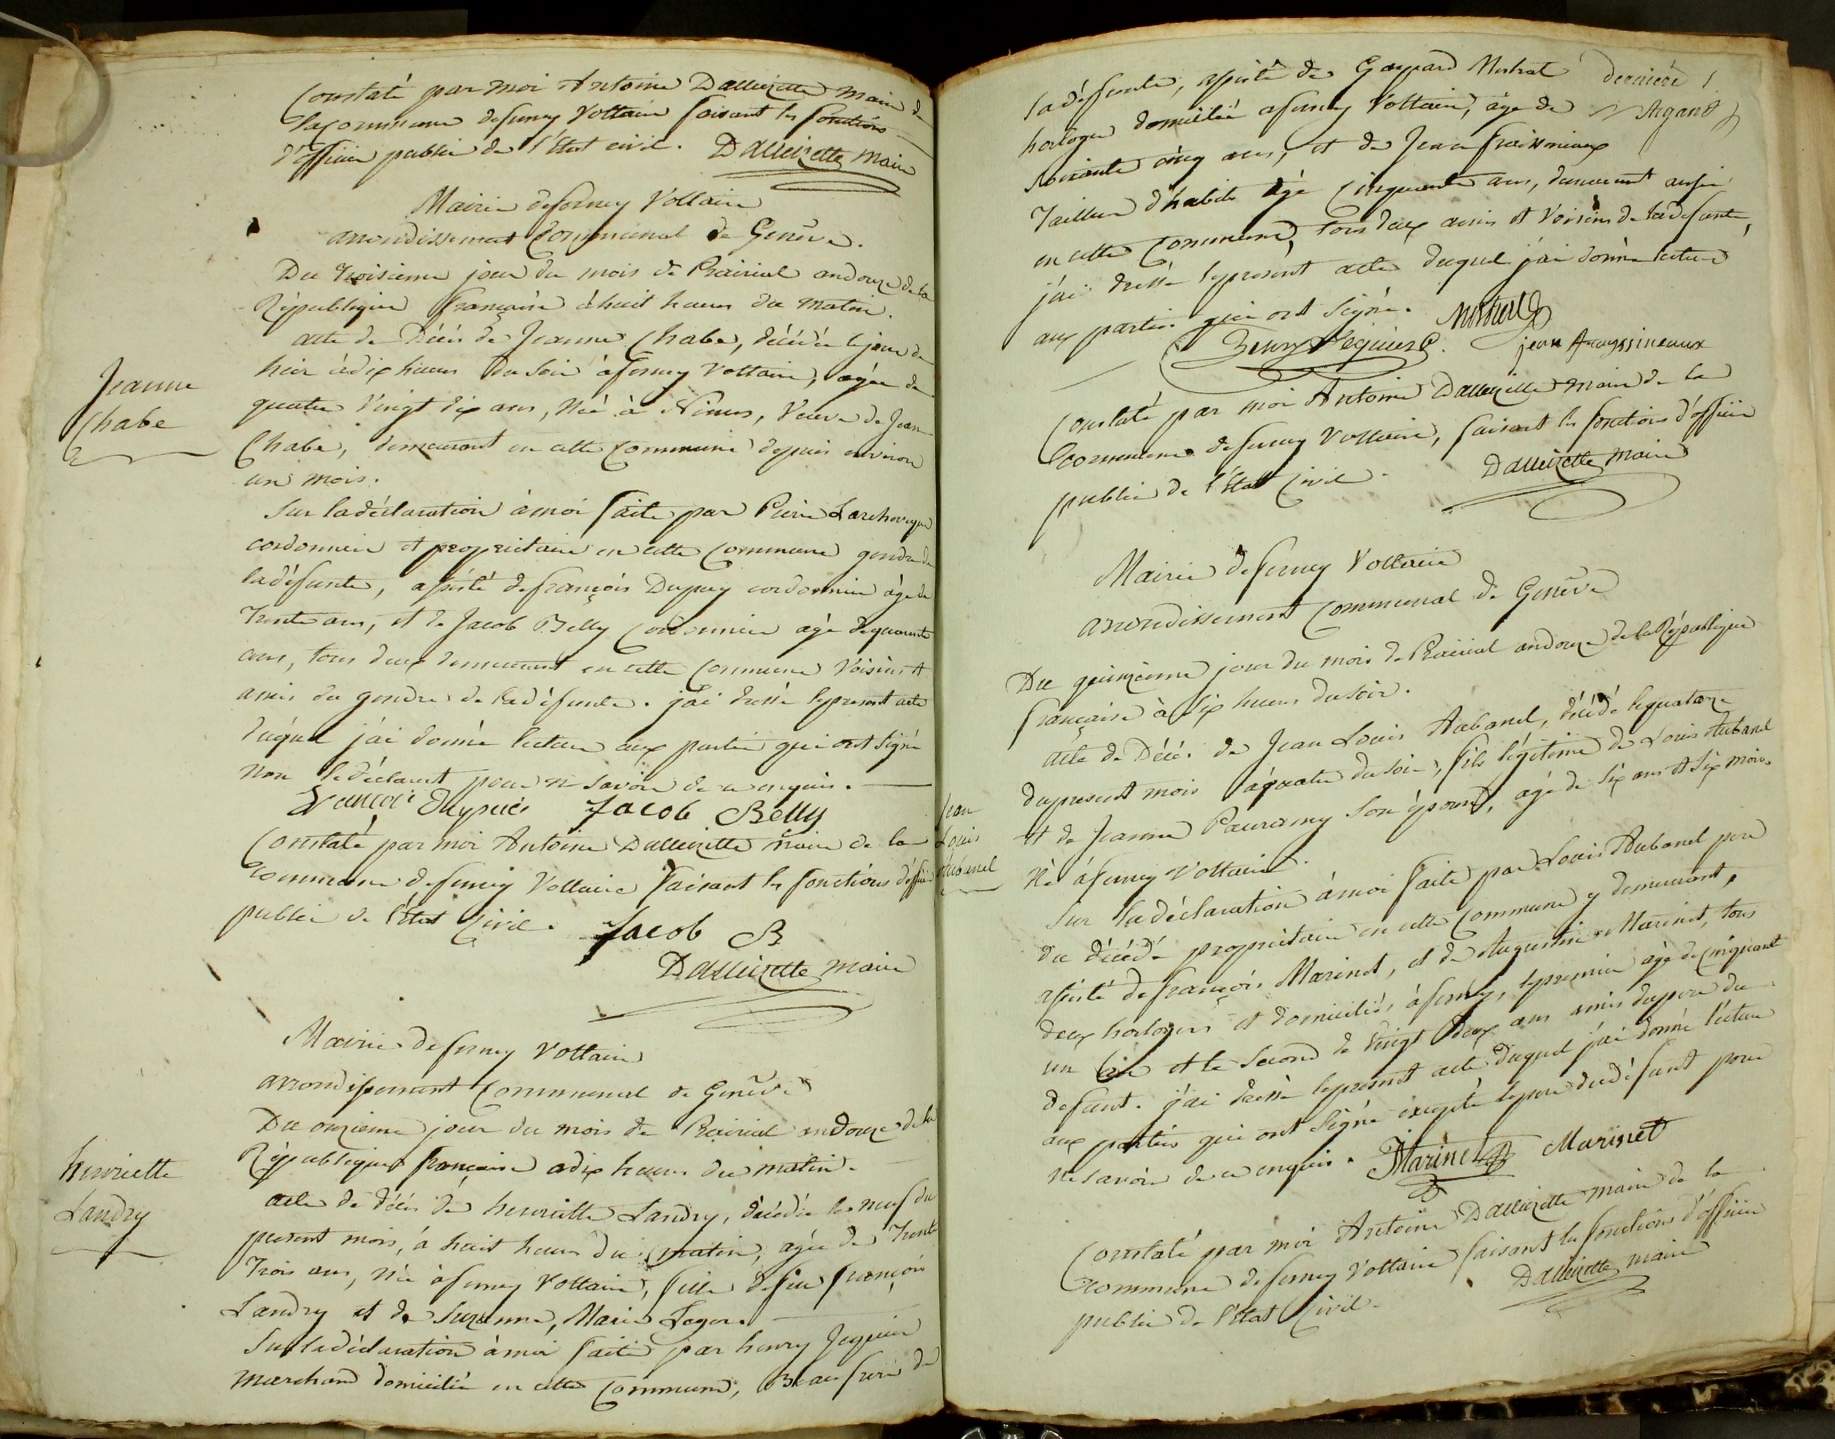 Constaté par moi Antoine Dalleizette maire de
la Commune de ferney Voltaire faisant les fonctions
d'officier public de l'État civil. Dalleizette maire
Mairie de ferney Voltaire
arrondissement Communal de Genève.
Du troisieme jour du mois de Prairial an douze de la
République française à huit heures du matin.
acte de Décès de Jeanne Chabe, décédée le jour de
hier à dix heures du soir à ferney Voltaire, agée de
quatre vingt dix ans, née à Nimes, Veuve de Jean
Jeanne
Chabe
Chabe, demeurant en cette Commune depuis environ
un mois.
Sur la déclaration à moi faite par Pierre Larcheveque
cordonnier et propriétaire en cette Commune gendre de
la défunte, assisté de françois Dupuy cordonnier âgé de
Trente ans, et de Jacob Belly Cordonnier agé de quarante
ans, tous deux demeurant en cette Commune Voisins et
amis du gendre de la défunte. j'ai dressé le présent acte
duquel j'ai donné lecture aux parties qui ont signé
non le déclarant pour ne savoir de ce enquis.
françois Dupuis Jacob Belly
Constaté par moi Antoine Dalleizette maire de la
Commune de ferney Voltaire faisant les fonctions d'officier
public de l'État Civil. Jacob B
Dalleizette maire
Mairie de ferney Voltaire
arrondissement Communal de Genève
Du onzieme jour du mois de Prairial an douze de la
République française a dix heures du matin.
henriette
Landry
acte de décès de henriette Landry, décédée le neuf du
present mois, à huit heures du matin, agée de Trente
Trois ans, née à ferney Voltaire, fille de feu françois
Landry et de Suzanne, Marie Leger.
Sur la déclaration à moi faite par henry Jequier
marchand domicilié en cette Commune, Beau frère de
la défunte, assisté de Gaspard Mestrat
horloger domicilié a ferney Voltaire, âgé de
soixante cinq ans, et de Jean fraissineaux
Tailleur d'habits âgé Cinquante ans, demeurant aussi
en cette Commune, tous deux amis et Voisins de la defunte,
j'ai dressé le présent acte duquel j'ai donné lecture
aux parties qui ont signé.
henry Jequier
jean frayssineaux
Constaté par moi Antoine Dalleizette maire de la
Commune de ferney Voltaire, faisant les fonctions d'officier
public de l'État Civil. Dalleizette maire
Mairie de ferney Voltaire
arrondissement Communal de Genève
Du quinzieme jour du mois de Prairial an douze de la République
française à six heures du soir.
acte de Décès de Jean Louis Aubanel, décédé le quatorze
du present mois à quatre du soir, fils légitime de Louis Aubanel
Jean
Louis
Aubanel
et de Jeanne Pauramy son épouse, agé de six ans et six mois.
Né à ferney Voltaire.
Sur la déclaration à moi faite par Louis Aubanel pere
du décédé propriétaire en cette Commune y demeurant,
assisté de françois Marinet, et de Augustin Marinet, tous
deux horlogers et domiciliés à ferney, le premier agé de cinquante
un ans et le second de vingt deux ans amis du pere du
defunt. j'ai dressé le present acte duquel j'ai donné lecture
aux parties qui ont signé excepté le pere du défunt pour
ne savoir de ce enquis. Marinet Marinet
Constaté par moi Antoine Dalleizette maire de la
Commune de ferney Voltaire faisant les fonctions d'officier
public de l'État Civil. Dalleizette maire